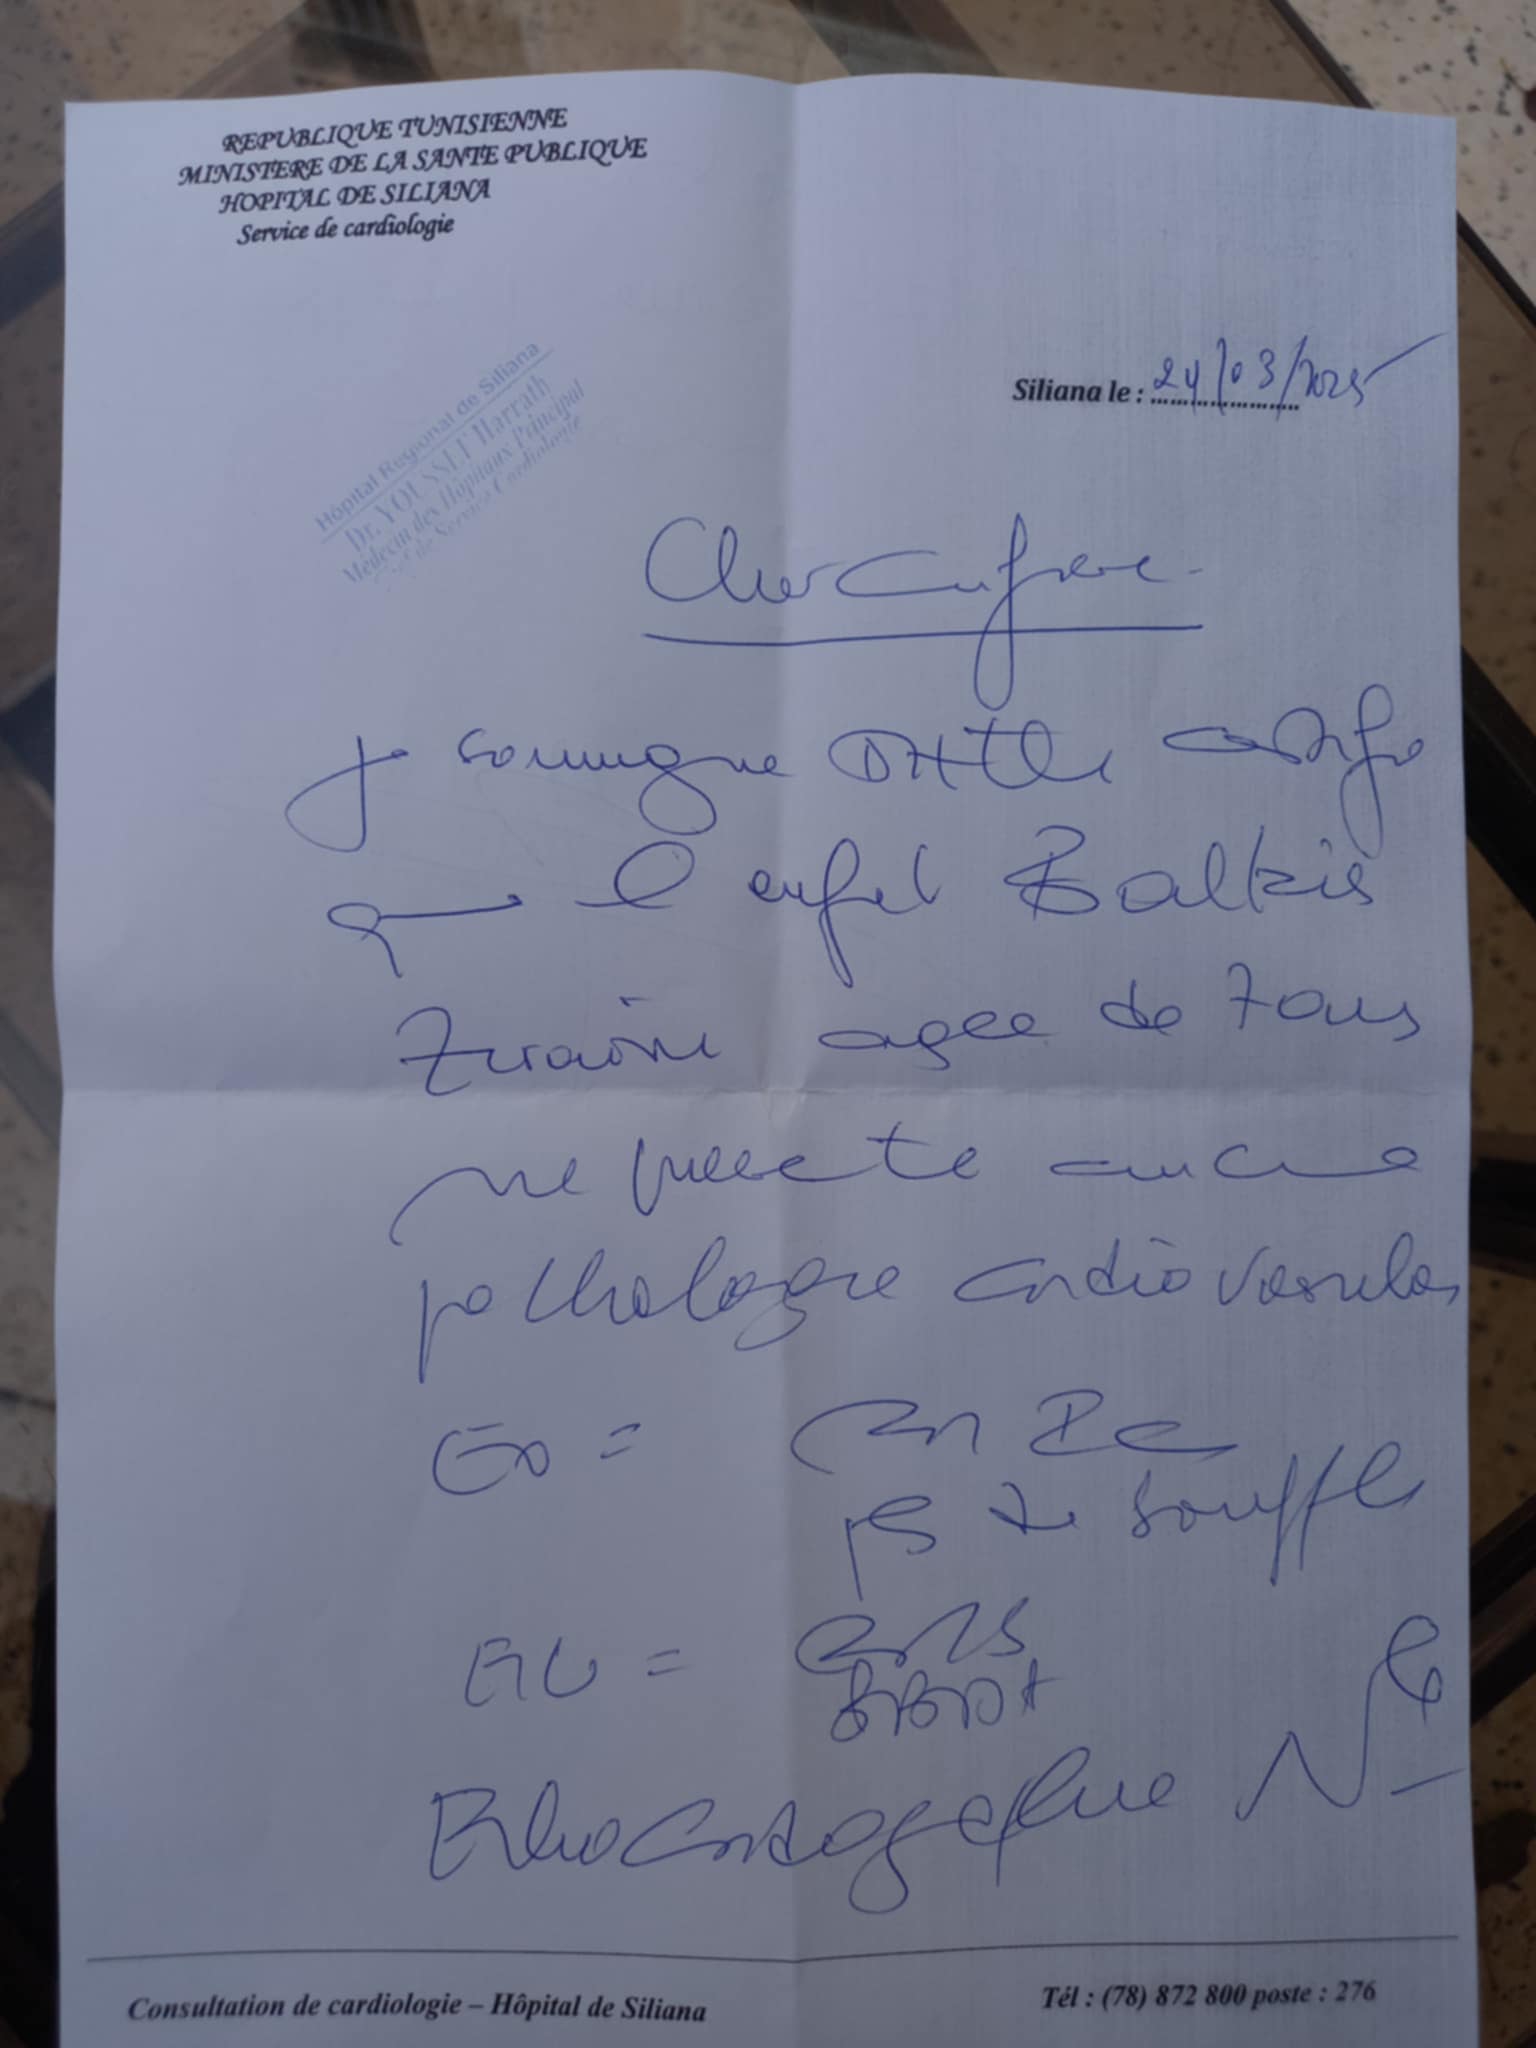 REPUBLIQUE TUNISIENNE
MINISTERE DE LA SANTE PUBLIQUE
HOPITAL DE SILIANA
Service de cardiologie
Hôpital Regional de Siliana
Dr. YOUSSEF Harrath
Médecin des Hôpitaux Principal
de Service Cardiologie
Siliana le : 24/03/2025
Cher Confrère
Je soussigne certifie
que l'enfant Balkis
agée de 7 ans
ne presente aucune
pathologie cardiovasculaire
Ex =
pas de souffle
ECG = 
BBDt
Echocardiographie Nle
Consultation de cardiologie – Hôpital de Siliana
Tél : (78) 872 800 poste : 276